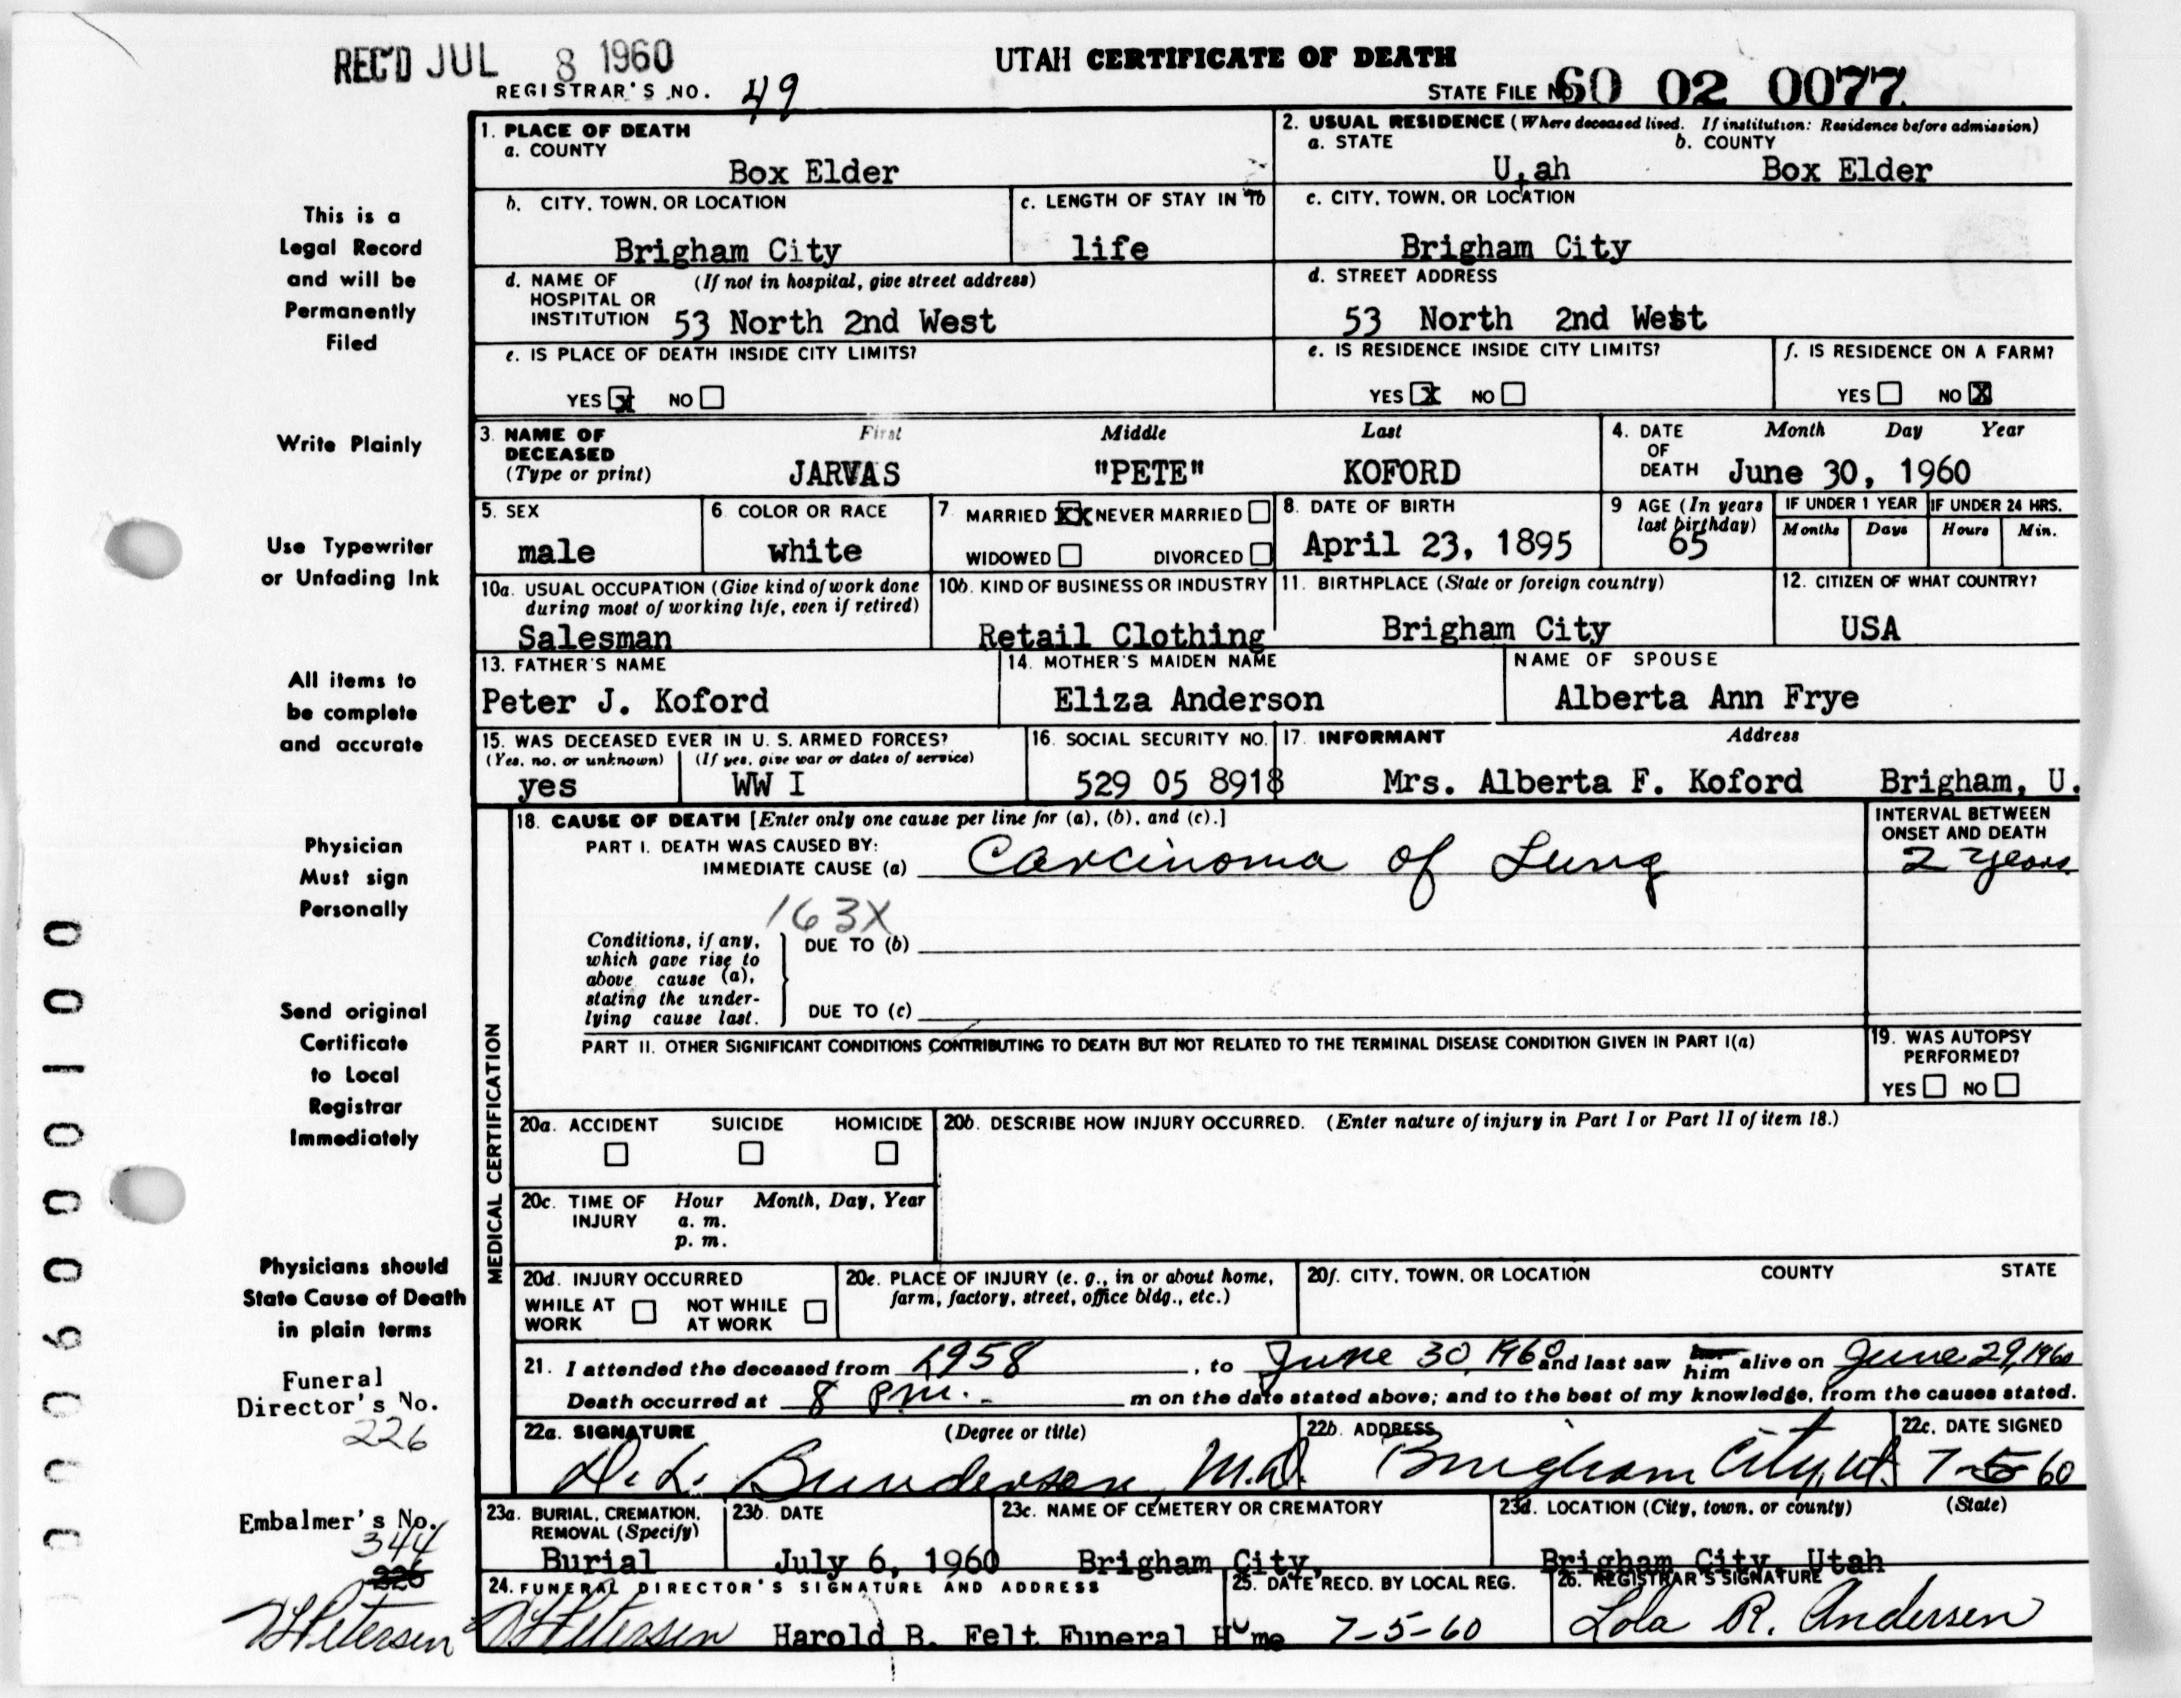 REC'D JUL 8 1960
UTAH CERTIFICATE OF DEATH
REGISTRAR'S NO. 49
STATE FILE NO. 60 02 0077
This is a
Legal Record
and will be
Permanently
Filed
Write Plainly
Use Typewriter
or Unfading Ink
All items to
be complete
and accurate
Physician
Must sign
Personally
Send original
Certificate
to Local
Registrar
Immediately
Physicians should
State Cause of Death
in plain terms
Funeral
Director's No.
226
Embalmer's No.
344
226
1. PLACE OF DEATH
a. COUNTY
Box Elder
2. USUAL RESIDENCE (Where deceased lived. If institution: Residence before admission)
a. STATE b. COUNTY
U,ah Box Elder
b. CITY, TOWN, OR LOCATION
Brigham City
c. LENGTH OF STAY IN 1b
life
c. CITY, TOWN, OR LOCATION
Brigham City
d. NAME OF (If not in hospital, give street address)
HOSPITAL OR
INSTITUTION 53 North 2nd West
d. STREET ADDRESS
53 North 2nd West
e. IS PLACE OF DEATH INSIDE CITY LIMITS?
YES X NO
e. IS RESIDENCE INSIDE CITY LIMITS?
YES X NO
f. IS RESIDENCE ON A FARM?
YES NO X
3. NAME OF DECEASED (Type or print)
First Middle Last
JARVAS "PETE" KOFORD
4. DATE OF DEATH Month Day Year
June 30, 1960
5. SEX
male
6. COLOR OR RACE
white
7. MARRIED XX NEVER MARRIED
WIDOWED DIVORCED
8. DATE OF BIRTH
April 23, 1895
9 AGE (In years last birthday)
65
IF UNDER 1 YEAR IF UNDER 24 HRS.
Months Days Hours Min.
10a. USUAL OCCUPATION (Give kind of work done
during most of working life, even if retired)
Salesman
10b. KIND OF BUSINESS OR INDUSTRY
Retail Clothing
11. BIRTHPLACE (State or foreign country)
Brigham City
12. CITIZEN OF WHAT COUNTRY?
USA
13. FATHER'S NAME
Peter J. Koford
14. MOTHER'S MAIDEN NAME
Eliza Anderson
NAME OF SPOUSE
Alberta Ann Frye
15. WAS DECEASED EVER IN U. S. ARMED FORCES?
(Yes, no, or unknown) (If yes, give war or dates of service)
yes WW I
16. SOCIAL SECURITY NO.
529 05 8918
17. INFORMANT Address
Mrs. Alberta F. Koford Brigham, U.
MEDICAL CERTIFICATION
18. CAUSE OF DEATH [Enter only one cause per line for (a), (b), and (c).]
PART I. DEATH WAS CAUSED BY:
IMMEDIATE CAUSE (a) Carcinoma of Lung
INTERVAL BETWEEN
ONSET AND DEATH
2 years
163X
Conditions, if any,
which gave rise to
above cause (a),
stating the under-
lying cause last.
DUE TO (b)
DUE TO (c)
PART II. OTHER SIGNIFICANT CONDITIONS CONTRIBUTING TO DEATH BUT NOT RELATED TO THE TERMINAL DISEASE CONDITION GIVEN IN PART I(a)
19. WAS AUTOPSY
PERFORMED?
YES NO
20a. ACCIDENT SUICIDE HOMICIDE
20b. DESCRIBE HOW INJURY OCCURRED. (Enter nature of injury in Part I or Part II of item 18.)
20c. TIME OF INJURY Hour Month, Day, Year
a. m.
p. m.
20d. INJURY OCCURRED
WHILE AT WORK NOT WHILE AT WORK
20e. PLACE OF INJURY (e. g., in or about home,
farm, factory, street, office bldg., etc.)
20f. CITY, TOWN, OR LOCATION COUNTY STATE
21. I attended the deceased from 1958, to June 30, 1960 and last saw him alive on June 29, 1960
Death occurred at 8 p.m. m on the date stated above; and to the best of my knowledge, from the causes stated.
22a. SIGNATURE (Degree or title)
D. L. Bunderson, M.D.
22b. ADDRESS
Brigham City, Ut.
22c. DATE SIGNED
7-5-60
23a. BURIAL, CREMATION,
REMOVAL (Specify)
Burial
23b. DATE
July 6, 1960
23c. NAME OF CEMETERY OR CREMATORY
Brigham City,
23d. LOCATION (City, town, or county) (State)
Brigham City, Utah
24. FUNERAL DIRECTOR'S SIGNATURE AND ADDRESS
Petersen Petersen Harold B. Felt Funeral Home
25. DATE RECD. BY LOCAL REG.
7-5-60
26. REGISTRAR'S SIGNATURE
Lola R. Andersen